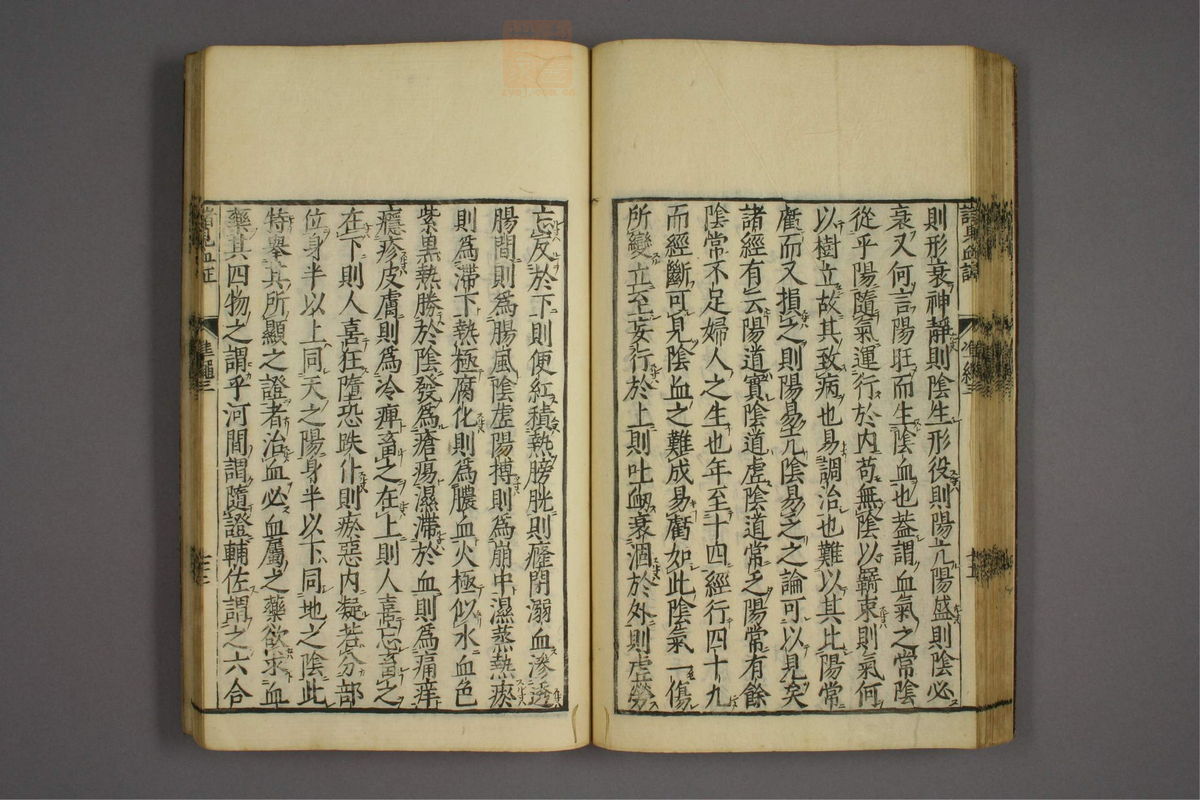 則形衰神靜則陰生形役則陽亢陽盛則陰必
衰又何言陽旺而生陰血也葢謂血氣之常陰
從乎陽隨氣運行於内苟無陰以羈束則氣何
以樹立故其致病也易調治也難以其比陽常
虧而又損之則陽易亢陰易乏之論可以見矣
諸經有云陽道實陰道虛陰道常乏陽常有餘
陰常不足婦人之生也年至十四經行四十九
而經斷可見陰血之難成易虧如此陰氣一傷
所變立至妄行於上則吐衂衰涸於外則虛勞
忘反於下則便紅積熱膀胱則癃閉溺血滲透
腸間則爲腸風陰虛陽搏則爲崩中濕蒸熱瘀
則爲滯下熱極腐化則爲膿血火極似水血色
紫黑熱勝於陰發爲瘡瘍濕滯於血則爲痛痒
癮疹皮膚則爲冷痺畜之在上則人喜忘畜之
在下則人喜狂墮恐跌仆則瘀惡内凝若分部
位身半以上同天之陽身半以下同地之陰此
特舉其所顯之證者治血必血屬之藥欲求血
藥其四物之謂乎河間謂隨證輔佐謂之六合